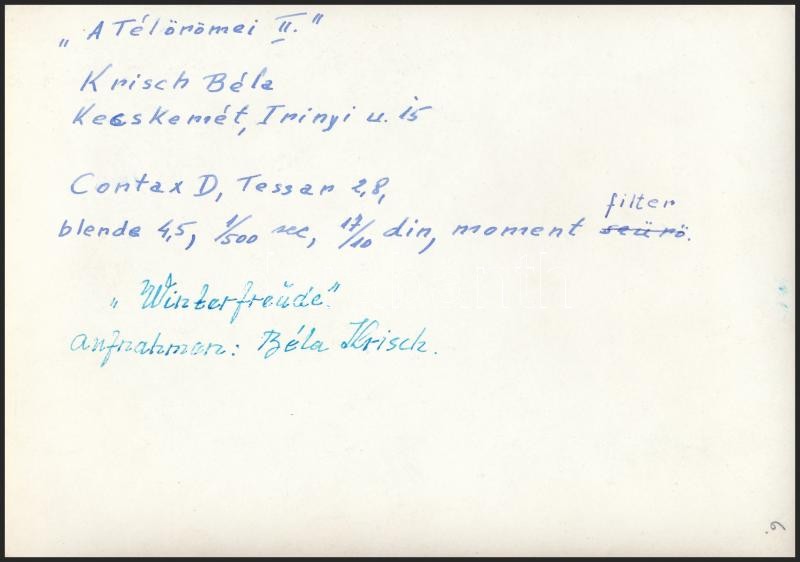 „A Tél örömei II.”
Krisch Béla
Kecskemét, Irinyi u. 15
Contax D, Tessar 2,8,
filter
blende 4,5, 1/500 sec, 17/10 din, moment szürö.
„Winterfreüde”.
Aufnahmen: Béla Krisch.
6.